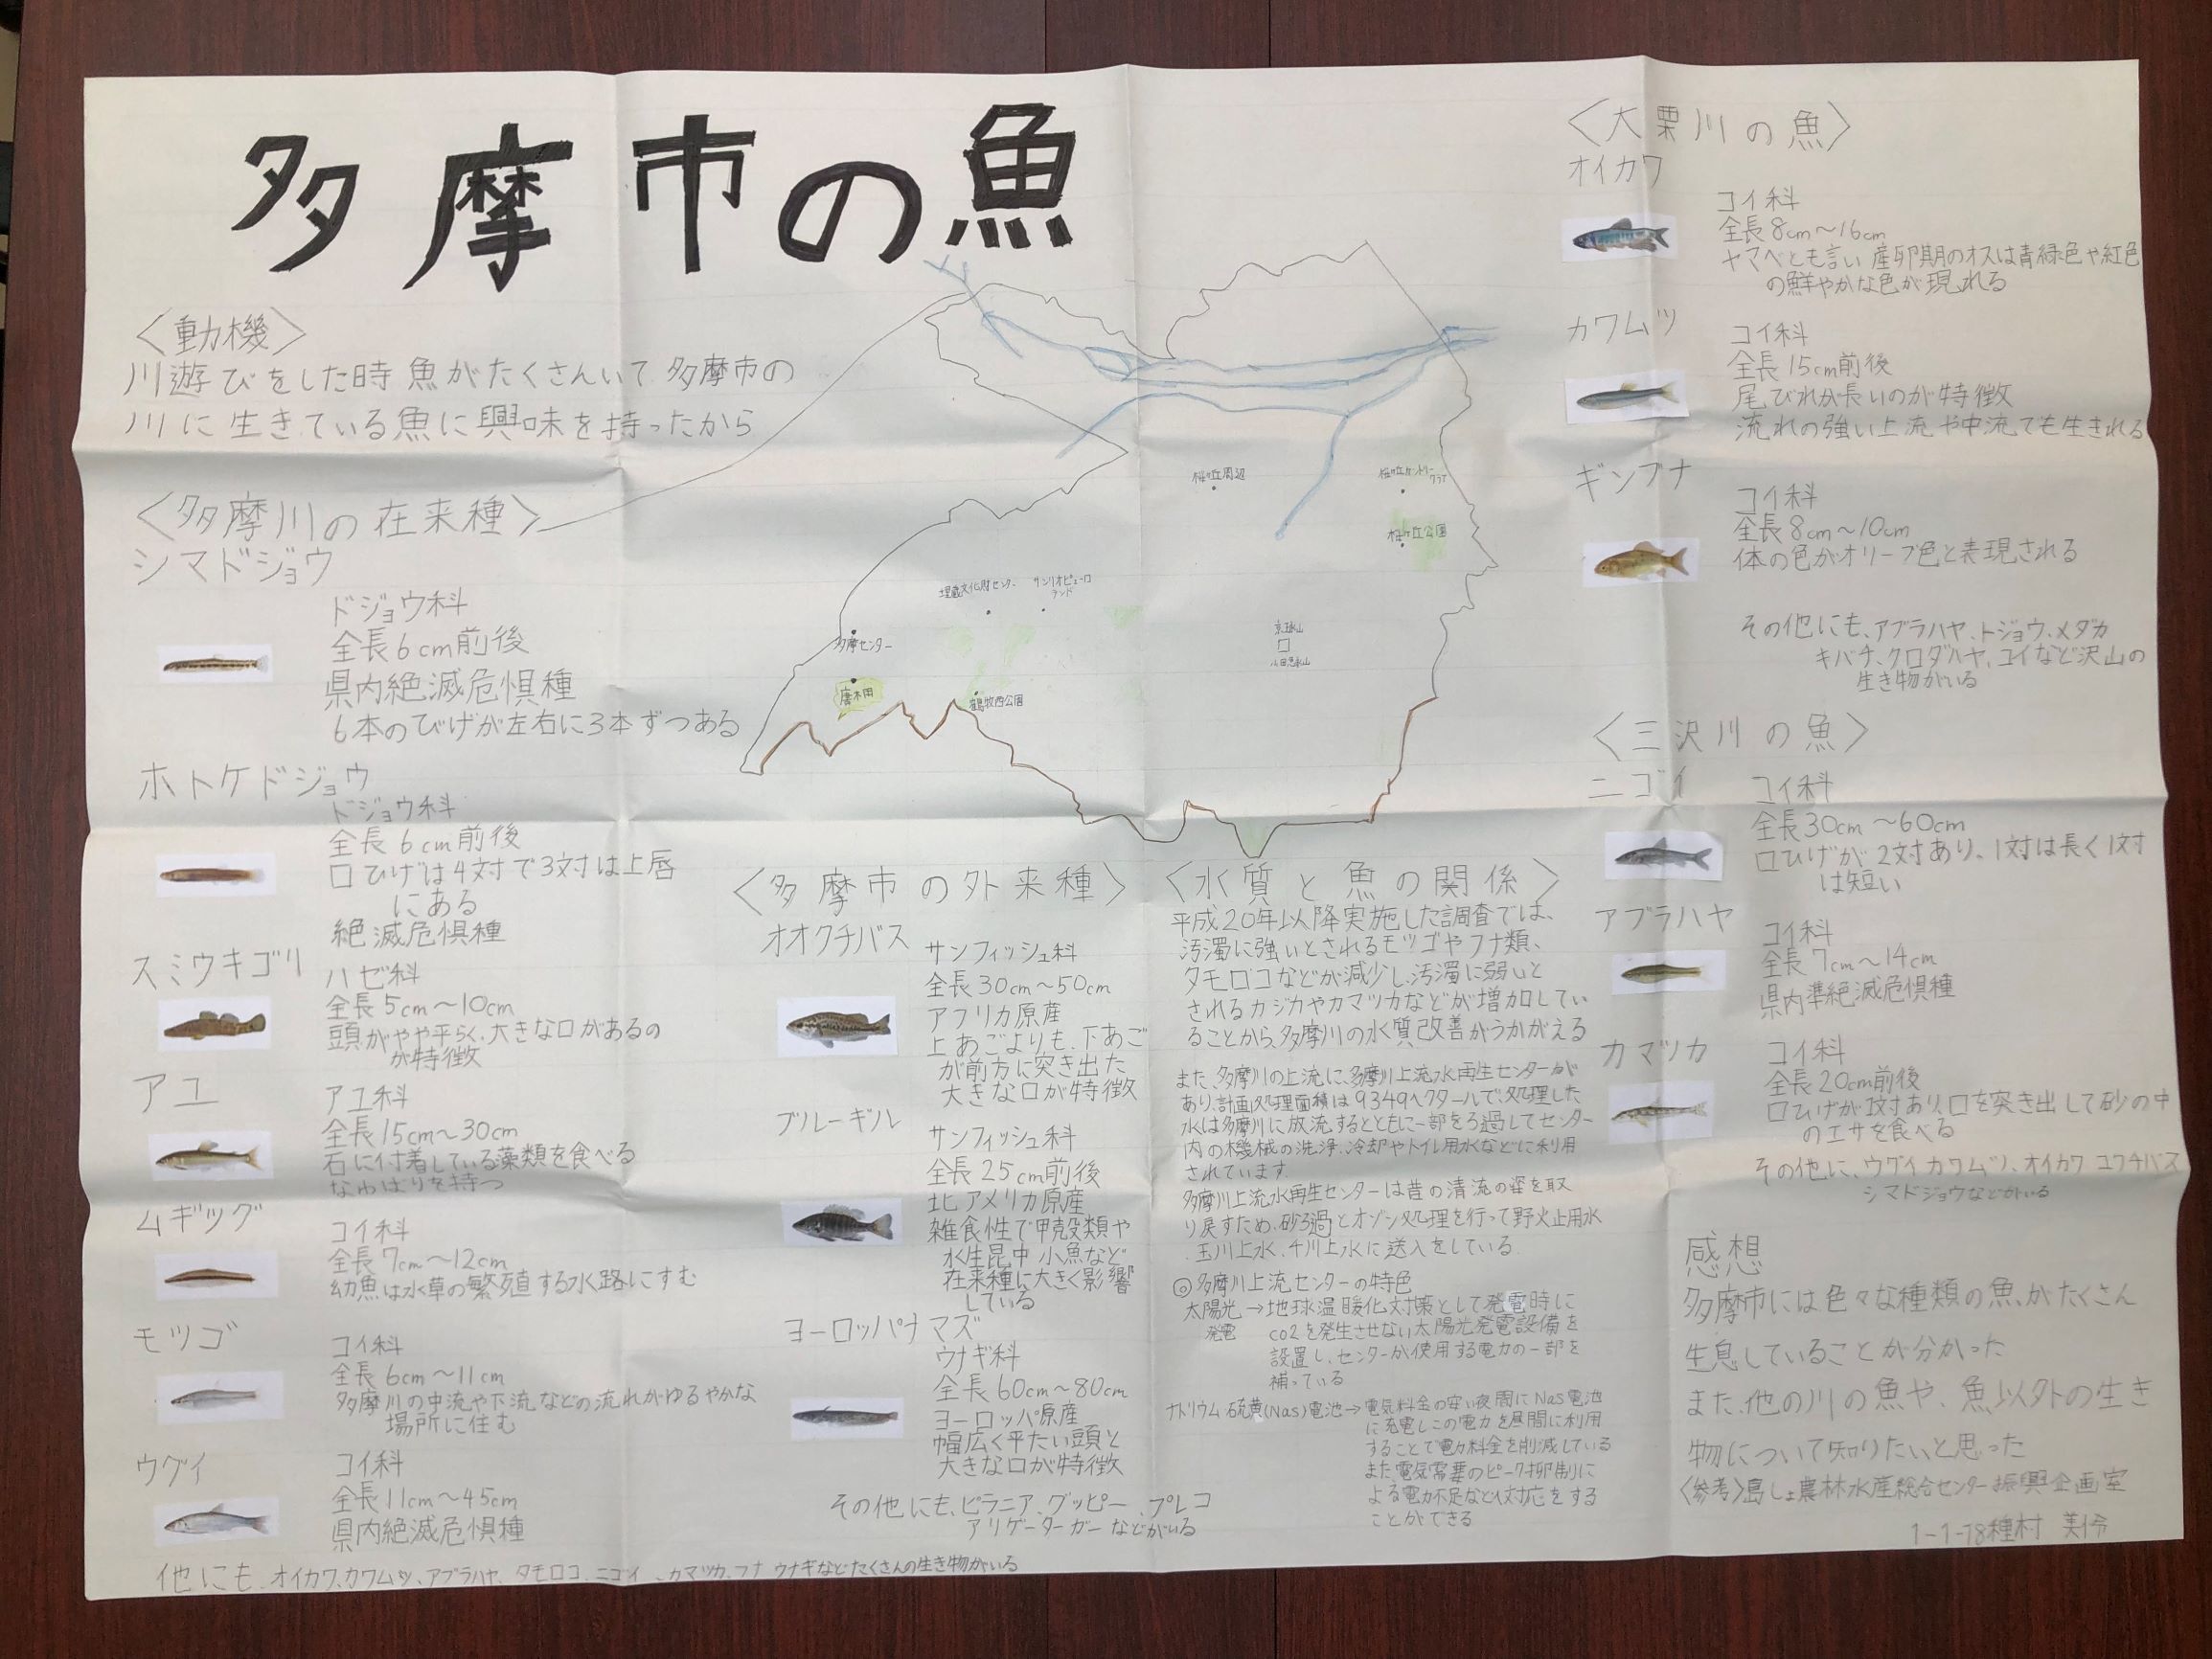 多摩市の魚
〈動機〉
川遊びをした時魚がたくさんいて多摩市の
川に生きている魚に興味を持ったから
〈多摩川の在来種〉
シマドジョウ
ドジョウ科
全長6cm前後
県内絶滅危惧種
6本のひげが左右に3本ずつある
ホトケドジョウ
ドジョウ科
全長6cm前後
口ひげは4対で3対は上唇
にある
絶滅危惧種
スミウキゴリ
ハゼ科
全長5cm〜10cm
頭がやや平らく、大きな口があるの
が特徴
アユ
アユ科
全長15cm〜30cm
石に付着している藻類を食べる
なわばりを持つ
ムギツグ
コイ科
全長7cm〜12cm
幼魚は水草の繁殖する水路にすむ
モツゴ
コイ科
全長6cm〜11cm
多摩川の中流や下流などの流れがゆるやかな
場所に住む
ウグイ
コイ科
全長11cm〜45cm
県内絶滅危惧種
他にも、オイカワ、カワムツ、アブラハヤ、タモロコ、ニゴイ、カマツカ、フナ、ウナギなどたくさんの生き物がいる
桜ヶ丘周辺
桜ヶ丘カントリー
クラブ
桜ヶ丘公園
埋蔵文化財センター
サンリオピューロ
ランド
多摩センター
京王永山
小田急永山
唐木田
鶴牧西公園
〈多摩市の外来種〉
オオクチバス
サンフィッシュ科
全長30cm〜50cm
アフリカ原産
上あごよりも、下あご
が前方に突き出た
大きな口が特徴
ブルーギル
サンフィッシュ科
全長25cm前後
北アメリカ原産
雑食性で甲殻類や
水生昆虫 小魚など
在来種に大きく影響
している
ヨーロッパナマズ
ウナギ科
全長60cm〜80cm
ヨーロッパ原産
幅広く平たい頭と
大きな口が特徴
その他にも、ピラニア、グッピー、プレコ
アリゲーターガーなどがいる
〈水質と魚の関係〉
平成20年以降実施した調査では、
汚濁に強いとされるモツゴやフナ類、
タモロコなどが減少し、汚濁に弱いと
されるカジカやカマツカなどが増加してい
ることから、多摩川の水質改善がうかがえる
また、多摩川の上流に、多摩川上流水再生センターが
あり、計画処理面積は9349ヘクタールで、処理した
水は多摩川に放流するとともに一部をろ過してセンター
内の機械の洗浄、冷却やトイレ用水などに利用
されています。
多摩川上流水再生センターは昔の清流の姿を取
り戻すため、砂ろ過とオゾン処理を行って野火止用水
、玉川上水、千川上水に送入をしている
◎多摩川上流センターの特色
太陽光→地球温暖化対策として発電時に
発電
co2を発生させない太陽光発電設備を
設置し、センターが使用する電力の一部を
補っている
ナトリウム硫黄(Nas)電池→電気料金の安い夜間にNas電池
に充電しこの電力を昼間に利用
することで電力料金を削減している
また、電気需要のピーク抑制に
よる電力不足などに対応をする
ことができる
〈大栗川の魚〉
オイカワ
コイ科
全長8cm〜16cm
ヤマベとも言い 産卵期のオスは青緑色や紅色
の鮮やかな色が現れる
カワムツ
コイ科
全長15cm前後
尾びれが長いのが特徴
流れの強い上流や中流でも生きれる
ギンブナ
コイ科
全長8cm〜10cm
体の色がオリーブ色と表現される
その他にも、アブラハヤ、トジョウ、メダカ
キバチ、クロダハヤ、コイなど沢山の
生き物がいる
〈三沢川の魚〉
ニゴイ
コイ科
全長30cm〜60cm
口ひげが2対あり、1対は長く1対
は短い
アブラハヤ
コイ科
全長7cm〜14cm
県内準絶滅危惧種
カマツカ
コイ科
全長20cm前後
口ひげが1対あり、口を突き出して砂の中
のエサを食べる
その他に、ウグイ カワムツ、オイカワ コクチバス
シマドジョウなどがいる
感想
多摩市には色々な種類の魚がたくさん
生息していることが分かった
また、他の川の魚や、魚以外の生き
物について知りたいと思った
〈参考〉島しょ農林水産総合センター振興企画室
1-1-18種村 美伶